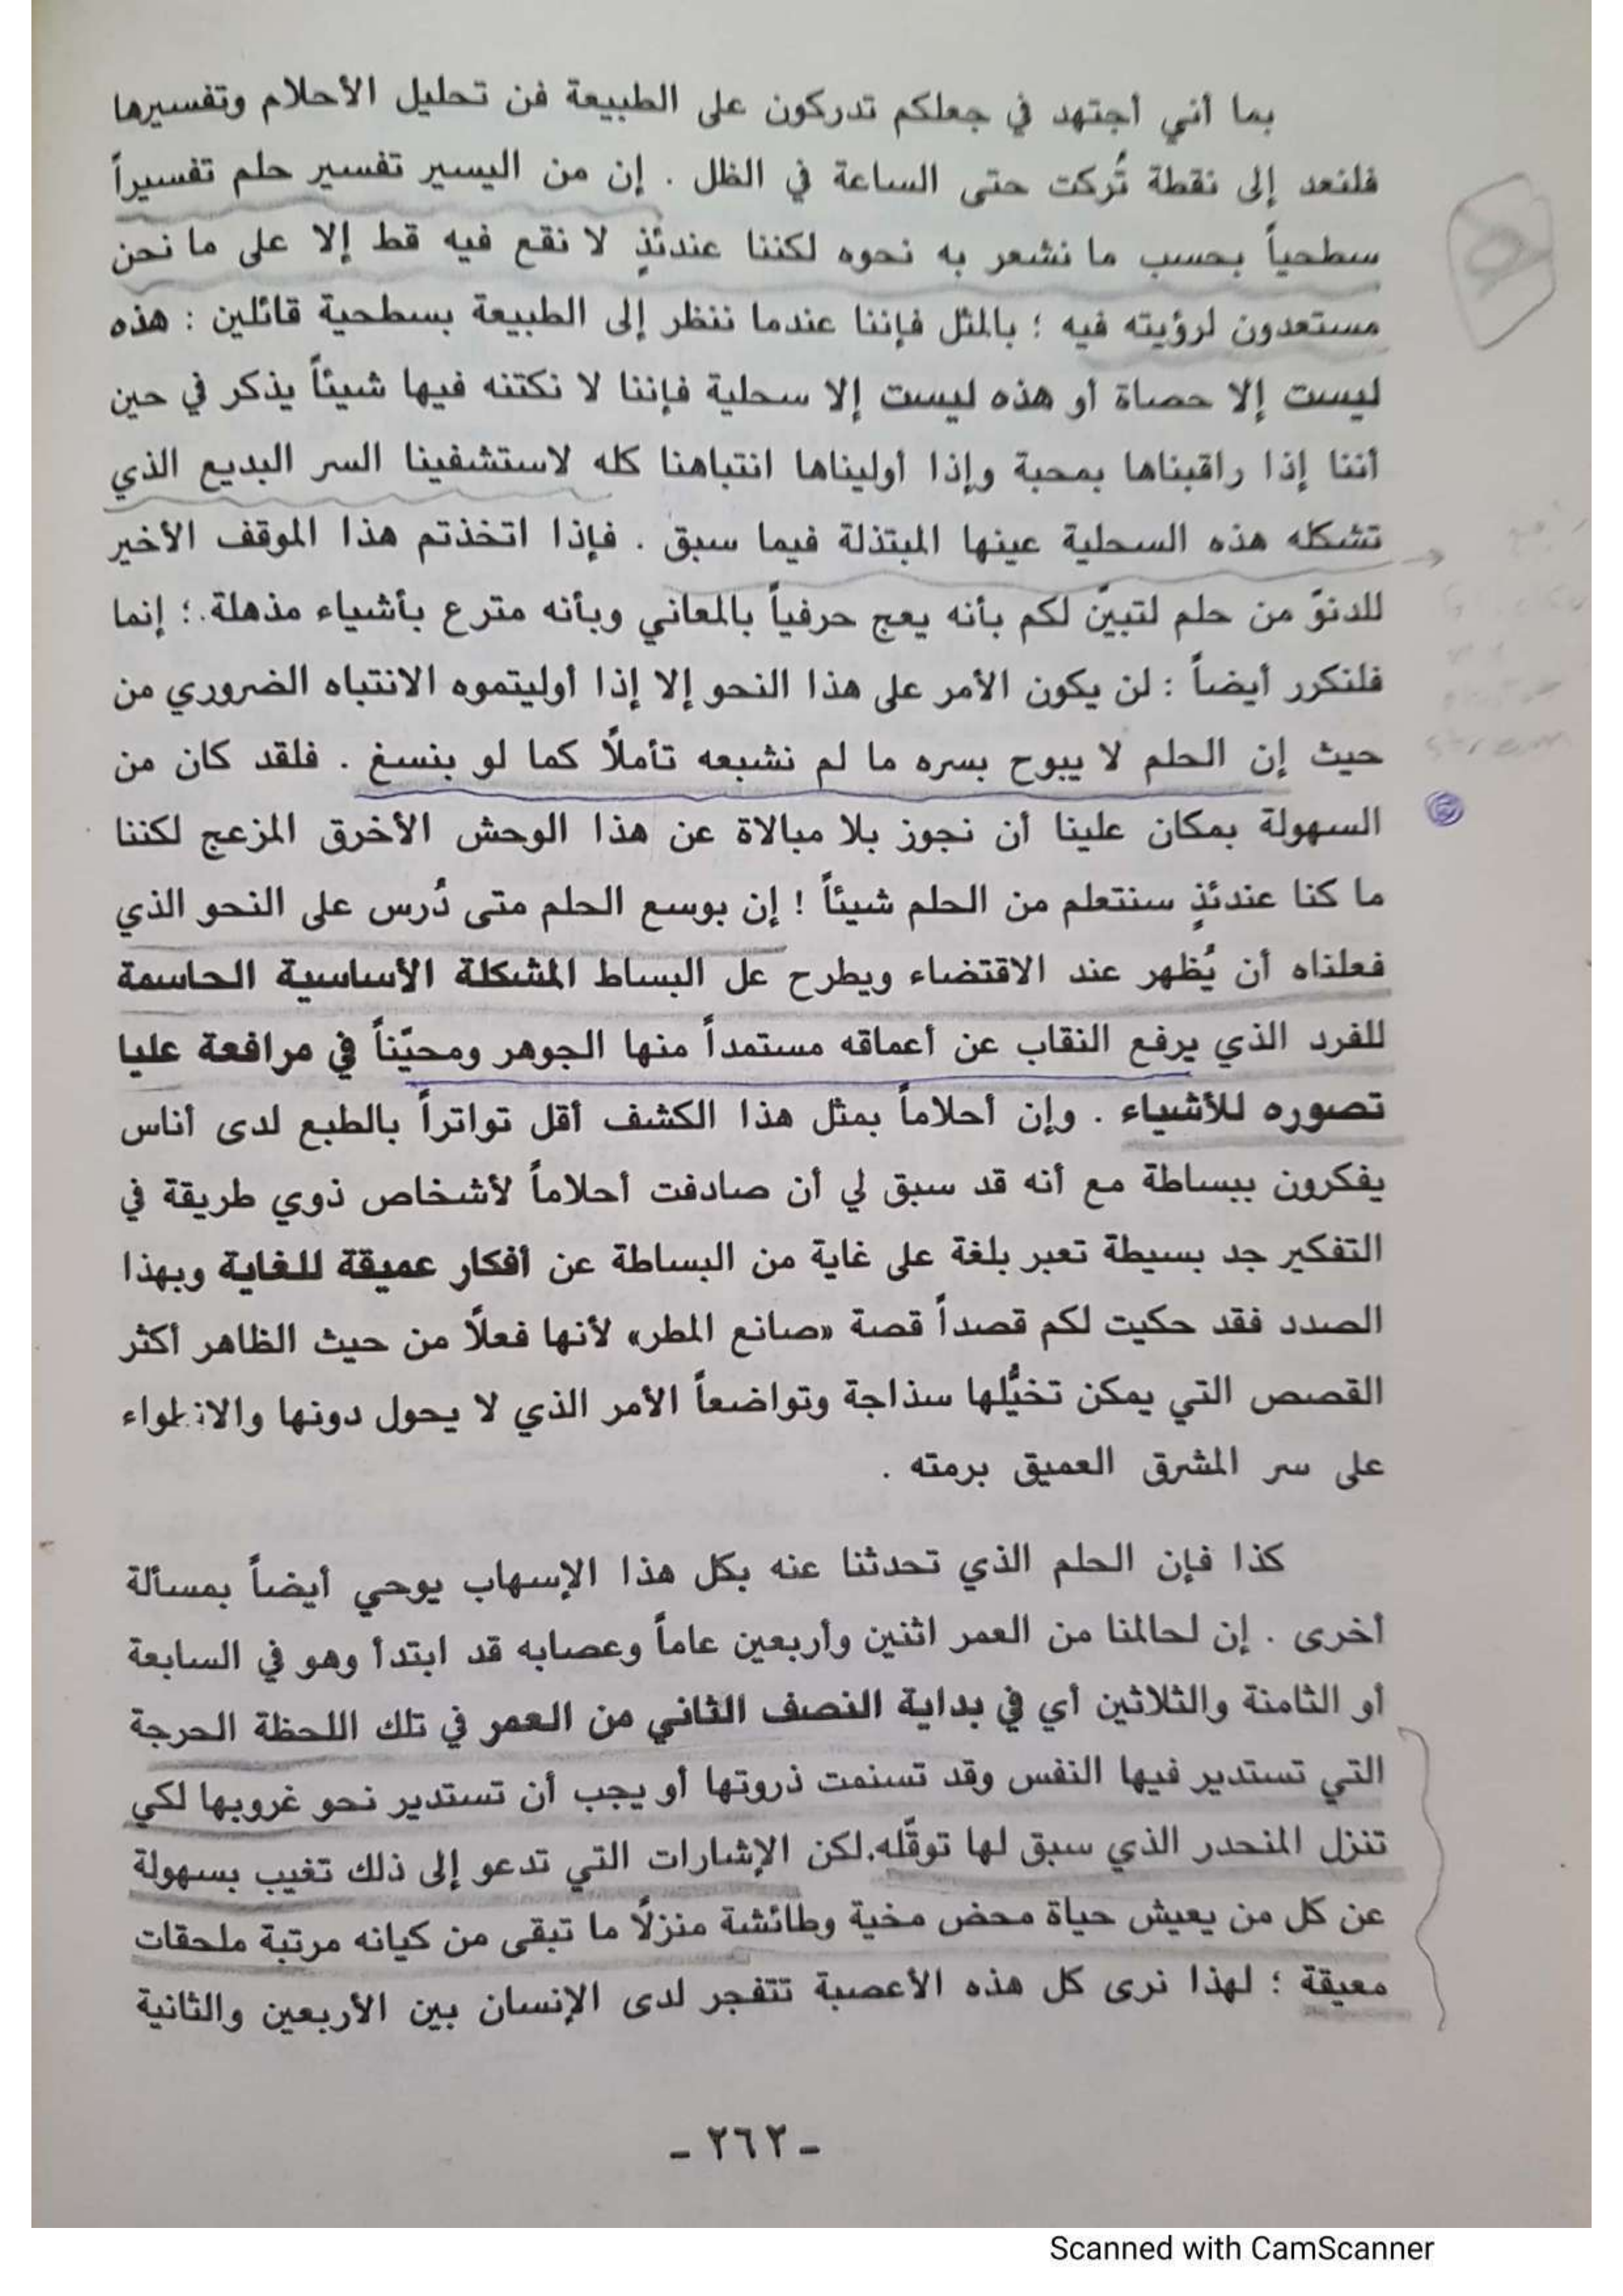 بما أني أجتهد في جعلكم تدركون على الطبيعة فن تحليل الأحلام وتفسيرها
فلنعد إلى نقطة تُركت حتى الساعة في الظل . إن من اليسير تفسير حلم تفسيراً
سطحياً بحسب ما نشعر به نحوه لكننا عندئذٍ لا نقع فيه قط إلا على ما نحن
مستعدون لرؤيته فيه ؛ بالمثل فإننا عندما ننظر إلى الطبيعة بسطحية قائلين : هذه
ليست إلا حصاة أو هذه ليست إلا سحلية فإننا لا نكتنه فيها شيئاً يذكر في حين
أننا إذا راقبناها بمحبة وإذا أوليناها انتباهنا كله لاستشفينا السر البديع الذي
تشكله هذه السحلية عينها المبتذلة فيما سبق . فإذا اتخذتم هذا الموقف الأخير
للدنوّ من حلم لتبيّن لكم بأنه يعج حرفياً بالمعاني وبأنه مترع بأشياء مذهلة . ؛ إنما
فلنكرر أيضاً : لن يكون الأمر على هذا النحو إلا إذا أوليتموه الانتباه الضروري من
حيث إن الحلم لا يبوح بسره ما لم نشبعه تأملًا كما لو بنسغ . فلقد كان من
السهولة بمكان علينا أن نجوز بلا مبالاة عن هذا الوحش الأخرق المزعج لكننا
ما كنا عندئذٍ سنتعلم من الحلم شيئاً ! إن بوسع الحلم متى دُرس على النحو الذي
فعلناه أن يُظهر عند الاقتضاء ويطرح عل البساط المشكلة الأساسية الحاسمة
للفرد الذي يرفع النقاب عن أعماقه مستمداً منها الجوهر ومحيّناً في مرافعة عليا
تصوره للأشياء . وإن أحلاماً بمثل هذا الكشف أقل تواتراً بالطبع لدى أناس
يفكرون ببساطة مع أنه قد سبق لي أن صادفت أحلاماً لأشخاص ذوي طريقة في
التفكير جد بسيطة تعبر بلغة على غاية من البساطة عن أفكار عميقة للغاية وبهذا
الصدد فقد حكيت لكم قصداً قصة «صانع المطر» لأنها فعلًا من حيث الظاهر أكثر
القصص التي يمكن تخيُّلها سذاجة وتواضعاً الأمر الذي لا يحول دونها والانطواء
على سر المشرق العميق برمته .
كذا فإن الحلم الذي تحدثنا عنه بكل هذا الإسهاب يوحي أيضاً بمسألة
أخرى . إن لحالمنا من العمر اثنين وأربعين عاماً وعصابه قد ابتدأ وهو في السابعة
أو الثامنة والثلاثين أي في بداية النصف الثاني من العمر في تلك اللحظة الحرجة
التي تستدير فيها النفس وقد تسنمت ذروتها أو يجب أن تستدير نحو غروبها لكي
تنزل المنحدر الذي سبق لها توقّله. لكن الإشارات التي تدعو إلى ذلك تغيب بسهولة
عن كل من يعيش حياة محض مخية وطائشة منزلًا ما تبقى من كيانه مرتبة ملحقات
معيقة ؛ لهذا نرى كل هذه الأعصبة تتفجر لدى الإنسان بين الأربعين والثانية
- ٢٦٢ -
Scanned with CamScanner